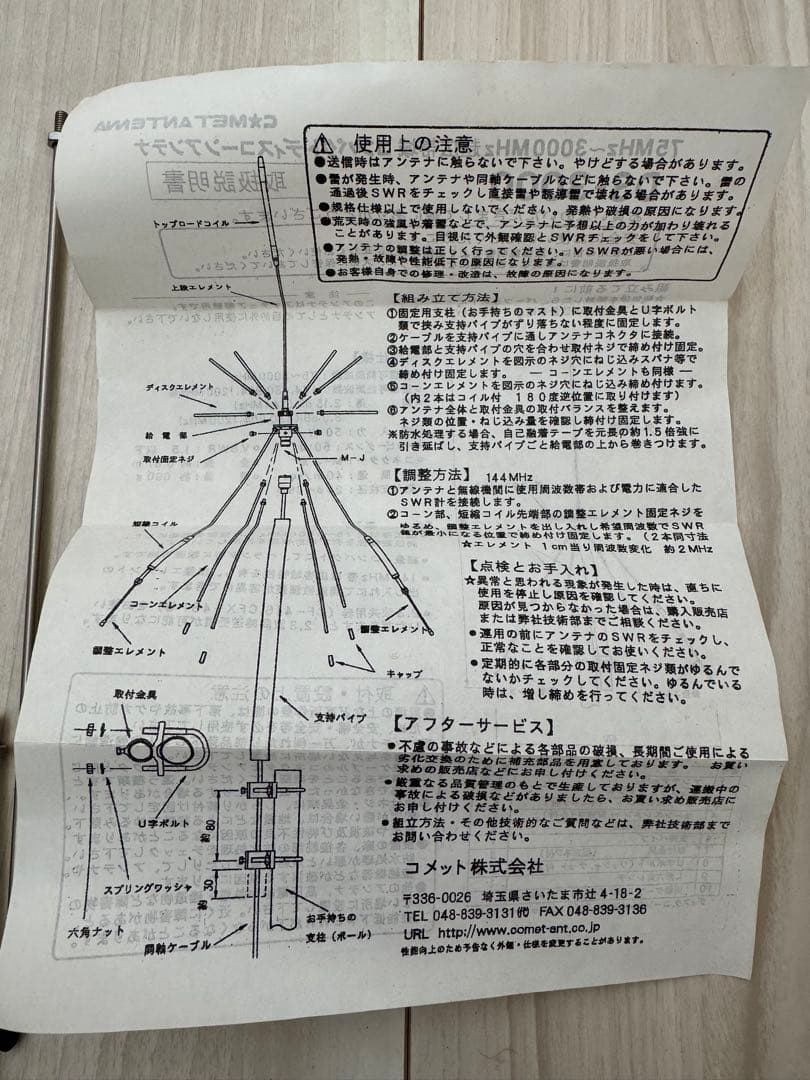 使用上の注意
●送信時はアンテナに触らないで下さい。やけどする場合があります。
●雷が発生時、アンテナや同軸ケーブルなどに触らないで下さい。雷の
通過後SWRをチェックし直接雷や誘導雷で壊れる場合があります。
●規格仕様以上で使用しないでください。発熱や破損の原因になります。
●荒天時の強風や着雪などで、アンテナに予想以上の力が加わり壊れる
ことがあります。目視にて外観確認とSWRチェックをして下さい。
●アンテナの調整は正しく行ってください。VSWRが悪い場合には、
発熱・故障や性能低下の原因になります。
●お客様自身での修理・改造は、故障の原因になります。
トップロードコイル
上段エレメント
ディスクエレメント
給電部
取付固定ネジ
M-J
短縮コイル
コーンエレメント
調整エレメント
調整エレメント
キャップ
取付金具
支持パイプ
U字ボルト
スプリングワッシャ
六角ナット
同軸ケーブル
約80
約30
お手持ちの
支柱(ポール)
【組み立て方法】
①固定用支柱(お手持ちのマスト)に取付金具とU字ボルト
類で挟み支持パイプがずり落ちない程度に固定します。
②ケーブルを支持パイプに通しアンテナコネクタに接続。
③給電部と支持パイプの穴を合わせ取付ネジで締め付け固定。
④ディスクエレメントを図示のネジ穴にねじ込みスパナ等で
締め付け固定します。 ― コーンエレメントも同様 ―
⑤コーンエレメントを図示のネジ穴にねじ込み締め付けます。
(内2本はコイル付 180度逆位置に取り付けます)
⑥アンテナ全体と取付金具の取付バランスを整えます。
ネジ類の位置・ねじ込み量を確認し締付け固定します。
※防水処理する場合、自己融着テープを元長の約1.5倍強に
引き延ばし、支持パイプごと給電部の上から巻きつけます。
【調整方法】 144MHz
①アンテナと無線機間に使用周波数帯および電力に適合した
SWR計を接続します。
②コーン部、短縮コイル先端部の調整エレメント固定ネジを
ゆるめ、調整エレメントを出し入れし希望周波数でSWR
値が最小になる位置で締め付け固定します。(2本同寸法
★エレメント1cm当り周波数変化 約2MHz
【点検とお手入れ】
☆異常と思われる現象が発生した時は、直ちに
使用を停止し原因を確認してください。
原因が見つからなかった場合は、購入販売店
または弊社技術部までご相談ください。
●運用の前にアンテナのSWRをチェックし、
正常なことを確認してお使いください。
●定期的に各部分の取付固定ネジ類がゆるんで
ないかチェックしてください。ゆるんでいる
時は、増し締めを行ってください。
【アフターサービス】
●不慮の事故などによる各部品の破損、長期間ご使用による
劣化交換のために補充部品を用意しております。 お買い
求めの販売店などにお申し付けください。
●厳重なる品質管理のもとで生産しておりますが、運搬中の
事故による破損などがありましたら、お買い求め販売店に
お申し付けください。
●組立方法・その他技術的なご質問などは、弊社技術部まで
お問い合わせください。
コメット株式会社
〒336-0026 埼玉県さいたま市辻4-18-2
TEL 048-839-3131㈹ FAX 048-839-3136
URL http://www.comet-ant.co.jp
性能向上のため予告なく外観・仕様を変更することがあります。